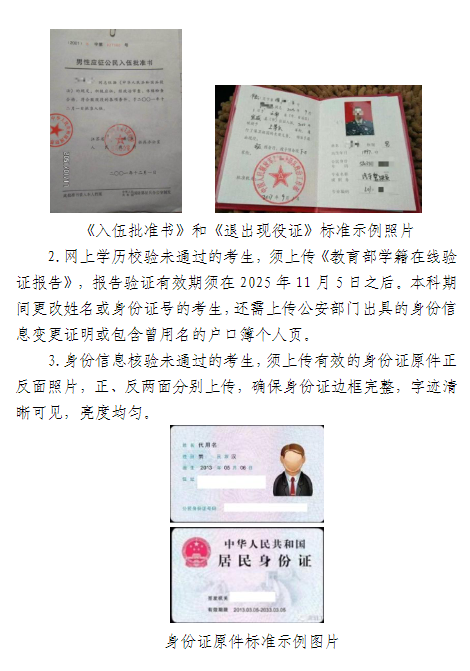 男性应征公民入伍批准书
《入伍批准书》和《退出现役证》标准示例照片
2.网上学历校验未通过的考生，须上传《教育部学籍在线验
证报告》，报告验证有效期须在 2025 年 11 月 5 日之后。本科期
间更改姓名或身份证号的考生，还需上传公安部门出具的身份信
息变更证明或包含曾用名的户口簿个人页。
3.身份信息核验未通过的考生，须上传有效的身份证原件正
反面照片，正、反两面分别上传，确保身份证边框完整，字迹清
晰可见，亮度均匀。
姓名 代用名
性别 男 民族 汉
出生 2013 年 05 月 06 日
住址
公民身份号码
中华人民共和国
居民身份证
签发机关
有效期限 2013.05.06-2033.05.06
身份证原件标准示例图片